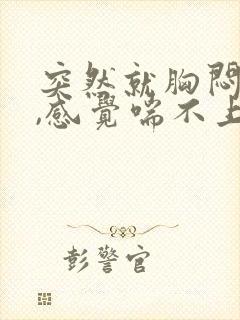 突然就胸悶
,感覺喘不上
彭警官